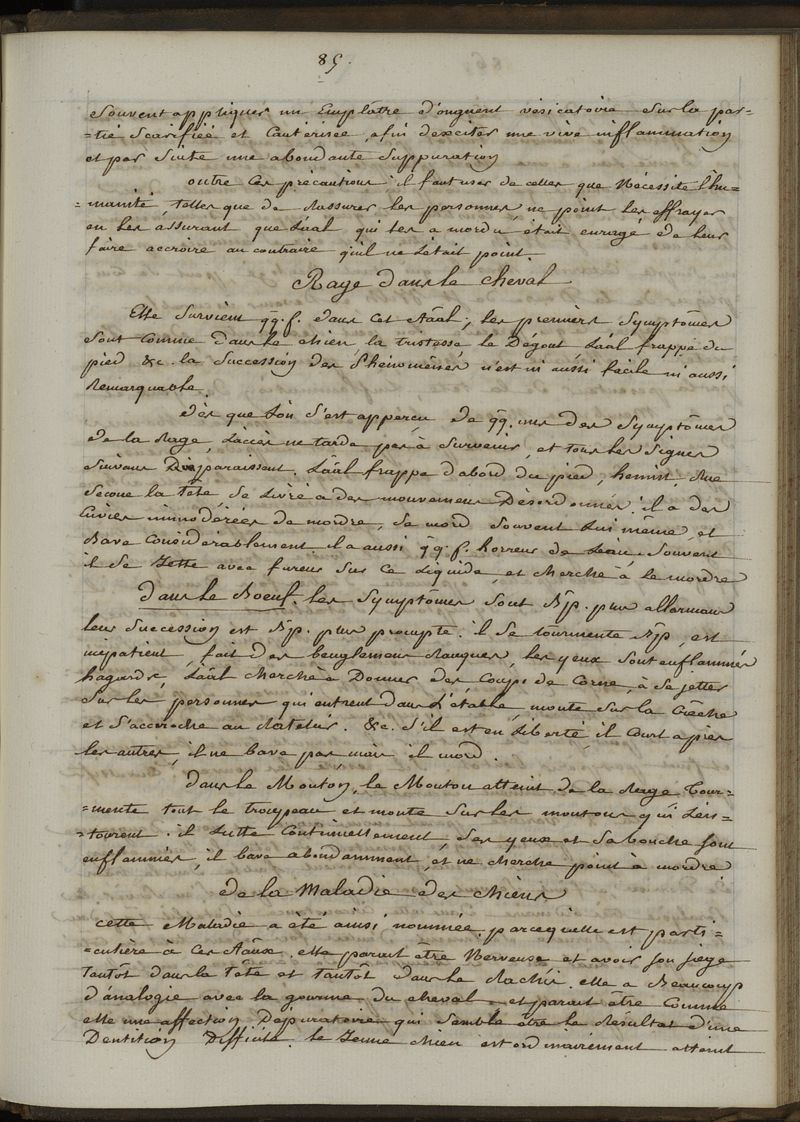 85.
Souvent appliquer un Emplâtre d'onguent vésicatoire sur la par=
=tie scarifiée et Cautérisée, afin d'exciter une vive inflammation
et par suite une abondante Suppuration
outre ces précautions il faut user de celles que Nécessite l'hu=
=manité, telles que de Rassurer les personnes, ne point les effrayer
en les assurant que l'aãl qui les a mordu était enragé de leur
faire accroire au contraire qu'il ne l'était point.
Rage dans le Cheval
Elle Survient qq. f. dans cet Aãal; les premiers Symptômes
sont comme dans le chien la tristesse, le Dégout, l'aãl frappe du
pied &c. la Succession des Phénomènes n'est ni aussi facile ni aussi
Remarquable.
dès que l'on s'est apperçu de qq. uns des Symptômes
de la Rage, l'accès ne tarde pas à Survenir, et tous les Signes
Suivans Disparaissent. L'aãl frappe d'abord du pied, hennit, Rue
Secoue la tête, Se Livre a des mouvemens Désordonnés: il a des
Envies immodérées de mordre, Se mord Souvent Lui même, et
Bave Considérablement il a aussi qq. f. horreur de l'eau. Souvent
il Se Jette avec fureur Sur ce Liquide, et cherche à le mordre
dans le Boeuf. les Symptômes Sont plus allarmans
leur Succession est plus prompte. il Se tourmente est
impatient, fait des beuglemens Rauques, les yeux Sont enflammés
hagards, L'aãl cherche à Donner des Coups de Corne, à Se jetter
Sur les personnes qui entrent dans L'étable, monte Sur la Crêche
et S'accroche au Ratelier. &c. S'il est en Liberté, il Court après
les autres, il ne bave pas, mais il mord.
dans le Mouton, le Mouton atteint de la Rage Tour=
=mente tout le troupeau et monte Sur les moutons qui L'en=
=tourent. il Lutte Continuellement, Ses yeux et Sa bouche sont
enflammés, il bave abondamment, et ne cherche point à mordre
de la Maladie des Chiens
cette Maladie a été ainsi nommée, parcequ'elle est parti=
=culière à ces Aãux. elle parait être Nerveuse et avoir son siege
tantôt dans la tête et tantôt dans le Rachis. elle a Beaucoup
d'analogie avec la gourme du cheval et parait être Comme
elle une affection Dépuratoire qui Semble être le Résultat d'une
Dentition Difficile. le Jeune chien est ordinairement atteint